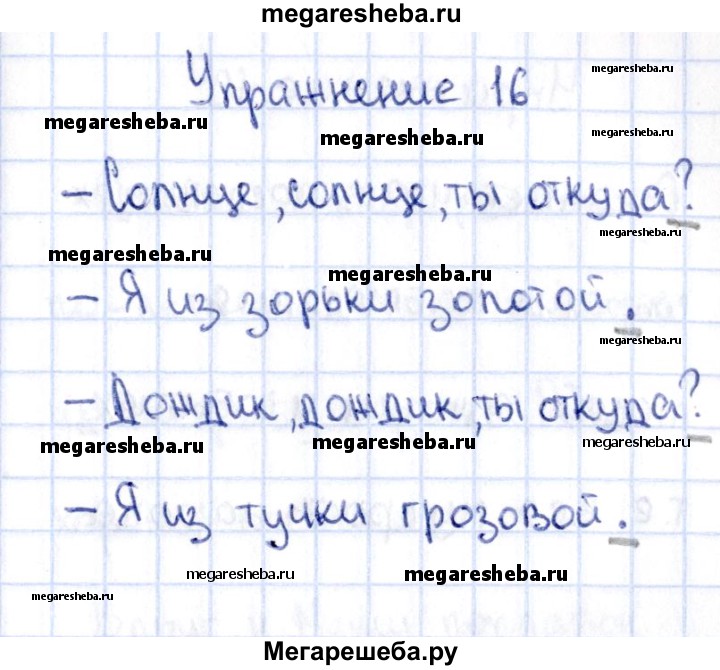 megaresheba.ru
Упражнение 16
megaresheba.ru
megaresheba.ru
megaresheba.ru
megaresheba.ru
– Солнце, солнце, ты откуда?
megaresheba.ru
megaresheba.ru
megaresheba.ru
– Я из зорьки золотой.
megaresheba.ru
– Дождик, дождик, ты откуда?
megaresheba.ru
megaresheba.ru
megaresheba.ru
– Я из тучки грозовой.
megaresheba.ru
megaresheba.ru
megaresheba.ru
Мегарешеба.ру